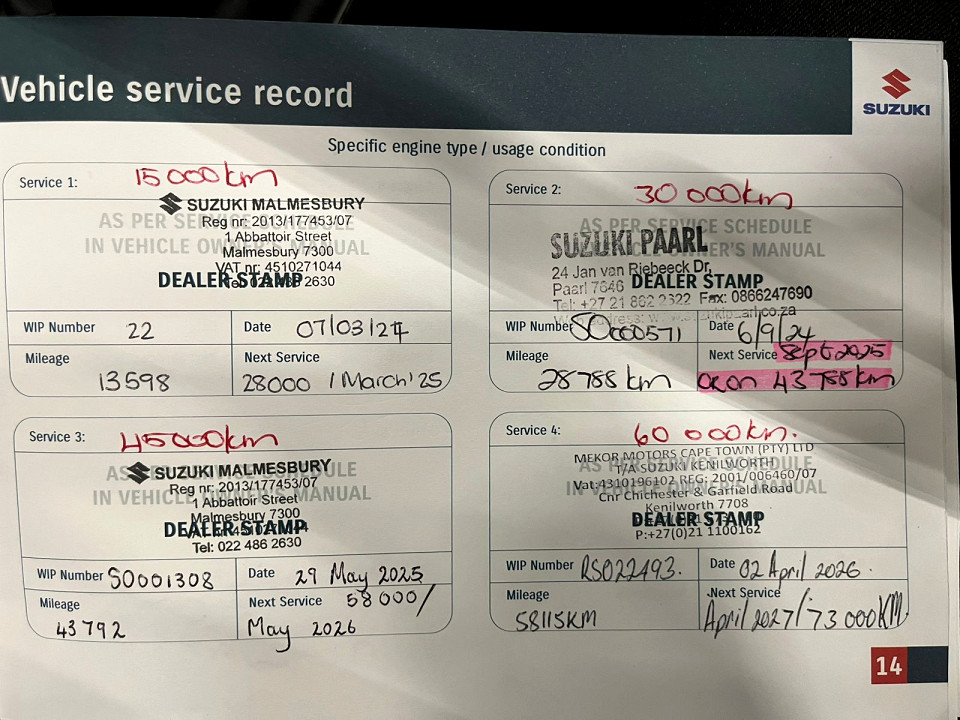 Vehicle service record
SUZUKI
Specific engine type / usage condition
Service 1: 15 000km
AS PER SERVICE SCHEDULE
IN VEHICLE OWNER'S MANUAL
SUZUKI MALMESBURY
Reg nr: 2013/177453/07
1 Abbattoir Street
Malmesbury 7300
VAT nr: 4510271044
DEALER STAMP
Tel: 022 486 2630
WIP Number 22
Date 07/03/24
Mileage 13598
Next Service
28000 / March'25
Service 2: 30 000km
AS PER SERVICE SCHEDULE
IN VEHICLE OWNER'S MANUAL
SUZUKI PAARL
24 Jan van Riebeeck Dr,
Paarl 7646
DEALER STAMP
Tel: +27 21 862 2322 Fax: 0866247690
WIP Number SO000571
Date 6/9/24
Mileage 28788 km
Next Service Sept 2025
OR on 43788km
Service 3: 45000km
AS PER SERVICE SCHEDULE
IN VEHICLE OWNER'S MANUAL
SUZUKI MALMESBURY
Reg nr: 2013/177453/07
1 Abbattoir Street
Malmesbury 7300
DEALER STAMP
Tel: 022 486 2630
WIP Number SO001308
Date 29 May 2025
Mileage 43792
Next Service 58000/
May 2026
Service 4: 60 000km.
AS PER SERVICE SCHEDULE
IN VEHICLE OWNER'S MANUAL
MEKOR MOTORS CAPE TOWN (PTY) LTD
T/A SUZUKI KENILWORTH
Vat:4310196102 REG: 2001/006460/07
Cnr Chichester & Garfield Road
Kenilworth 7708
DEALER STAMP
P:+27(0)21 1100162
WIP Number RS022493.
Date 02 April 2026.
Mileage 58115KM
Next Service
April 2027/73 000KM.
14